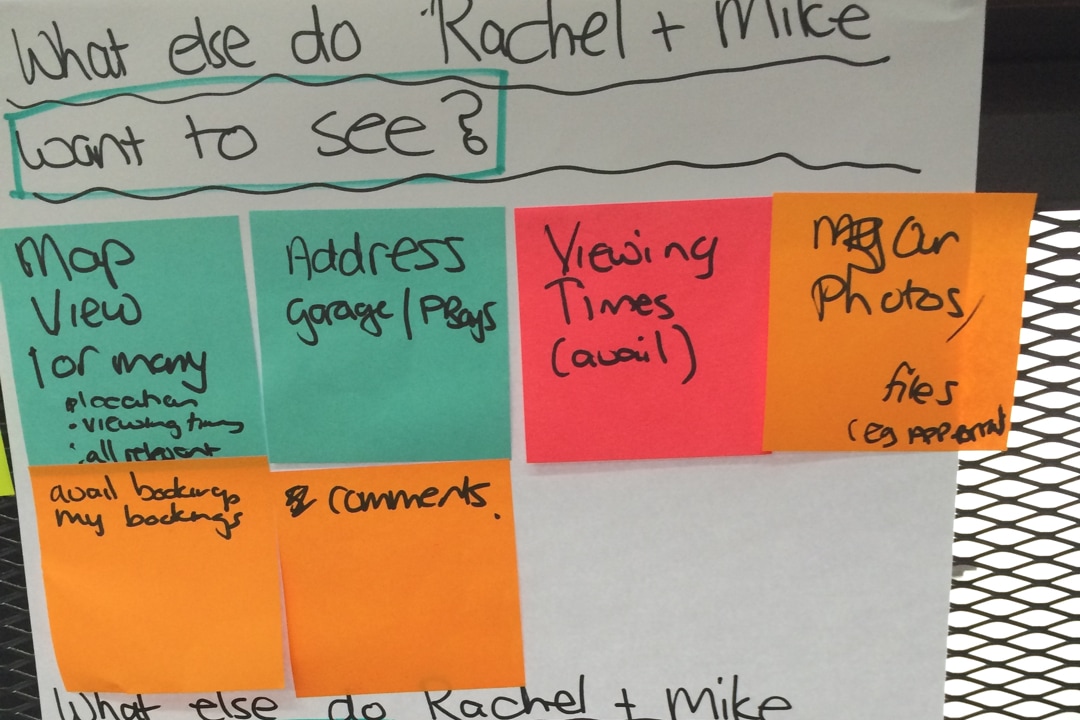 What else do Rachel + Mike
want to see?
Map
View
1 or many
location
• viewing times
• all relevant
Address
garage / PBays
Viewing
Times
(avail)
Our
Photos/
files
(eg APP.
avail bookings
my bookings
comments.
What else do Rachel + Mike